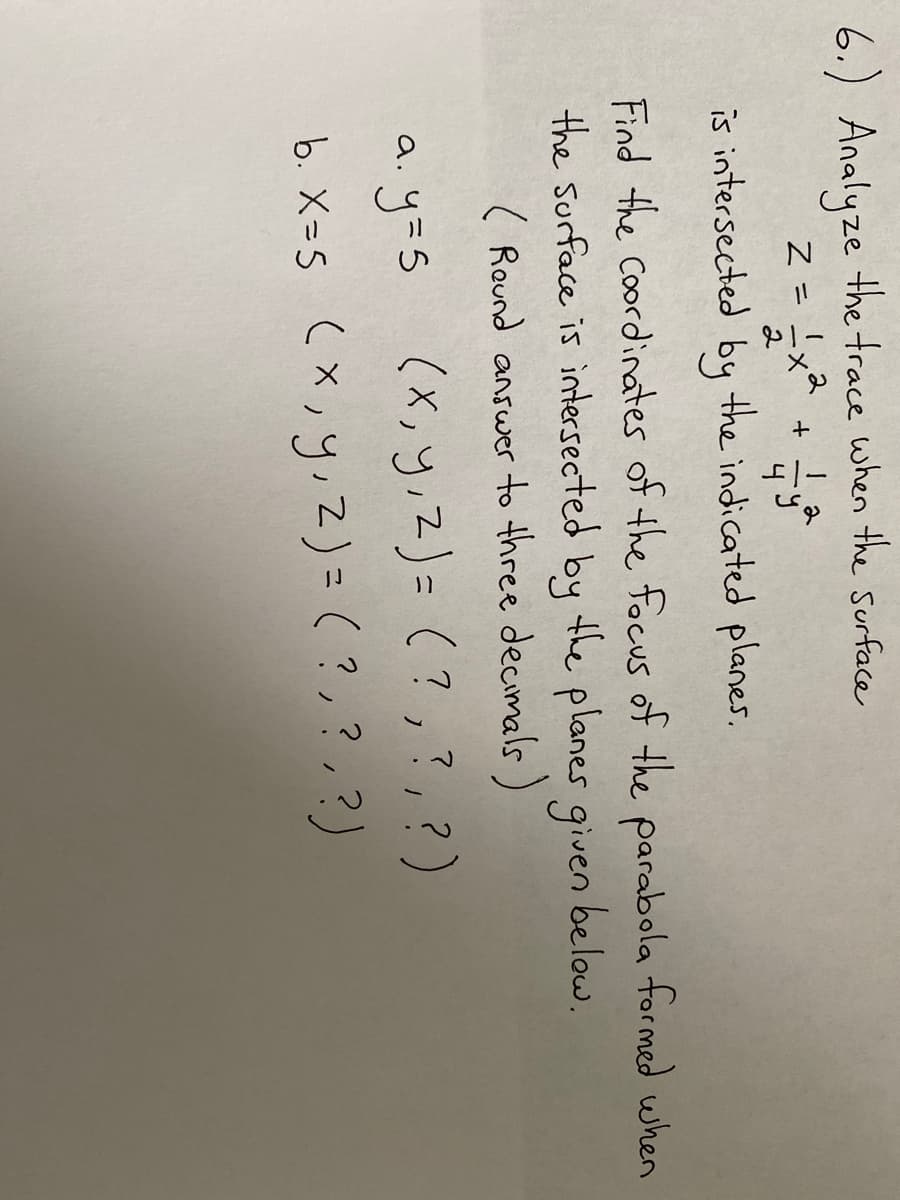 6.) Analyze the trace when the surface
z = 1/2 x² + 1/4 y²
is intersected by the indicated planes.
Find the coordinates of the focus of the parabola formed when
the surface is intersected by the planes given below.
( Round answer to three decimals )
a. y=5 (x, y, z) = ( ?, ?, ? )
b. x=5 (x, y, z) = ( ?, ?, ?)